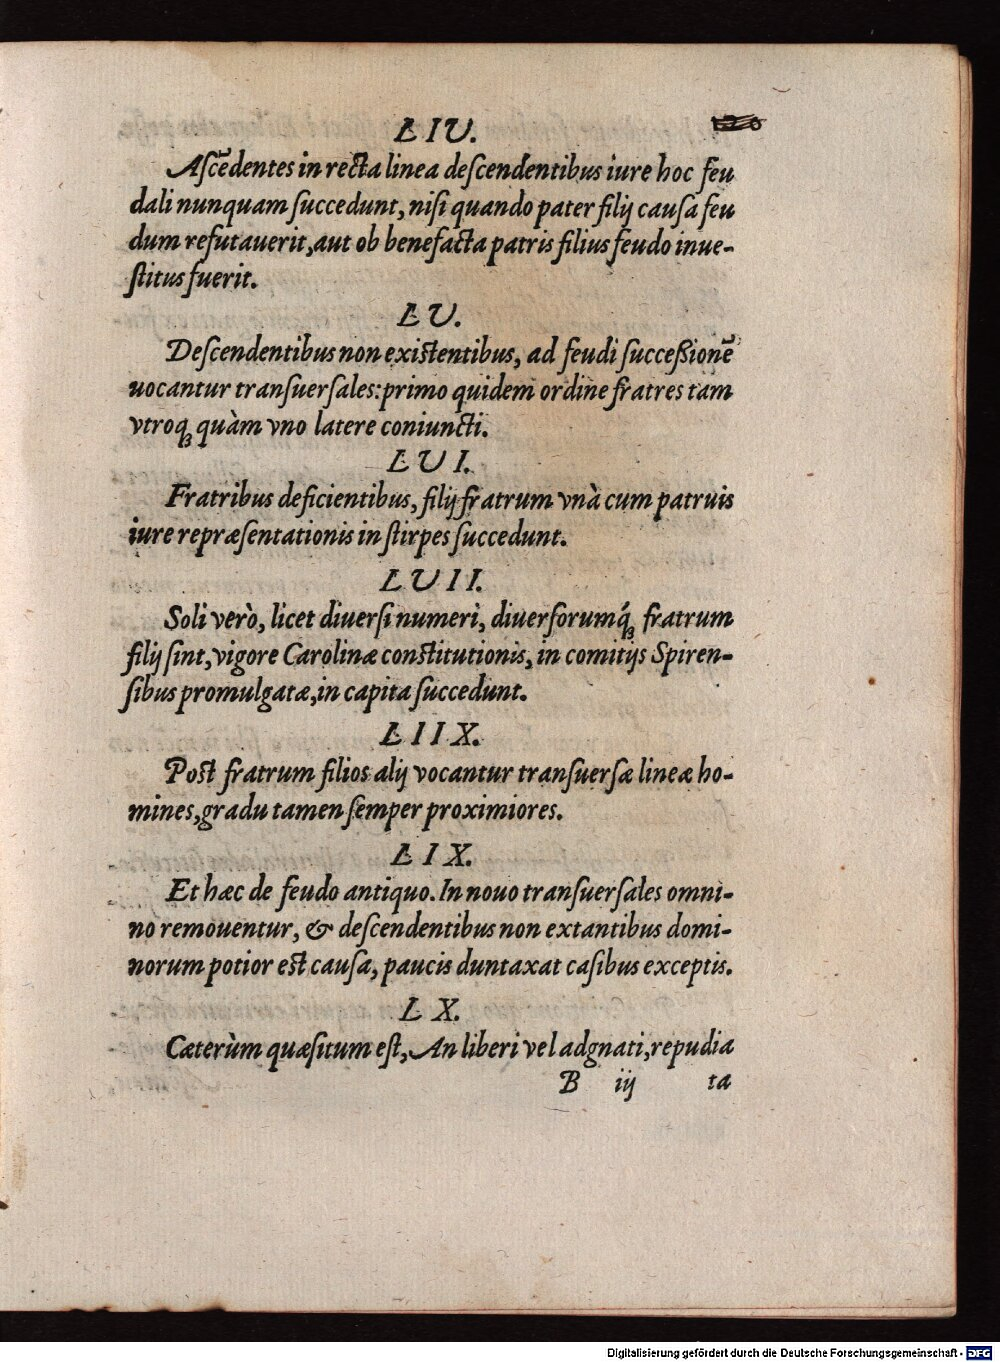 LIV.
Ascēdentes in recta linea descendentibus iure hoc feu
dali nunquam succedunt, nisi quando pater filij causa feu
dum refutauerit, aut ob benefacta patris filius feudo inue-
stitus fuerit.
LV.
Descendentibus non existentibus, ad feudi successionē
uocantur transuersales: primo quidem ordine fratres tam
vtroqꝫ quàm vno latere coniuncti.
LVI.
Fratribus deficientibus, filij fratrum vnà cum patruis
iure repræsentationis in stirpes succedunt.
LVII.
Soli verò, licet diuersi numeri, diuersorumqꝫ́ fratrum
filij sint, vigore Carolinæ constitutionis, in comitijs Spiren-
sibus promulgatæ, in capita succedunt.
LIIX.
Post fratrum filios alij vocantur transuersæ lineæ ho-
mines, gradu tamen semper proximiores.
LIX.
Et hæc de feudo antiquo. In nouo transuersales omni-
no remouentur, & descendentibus non extantibus domi-
norum potior est causa, paucis duntaxat casibus exceptis.
LX.
Cæterùm quæsitum est, An liberi vel adgnati, repudia
B iij ta
Digitalisierung gefördert durch die Deutsche Forschungsgemeinschaft - DFG